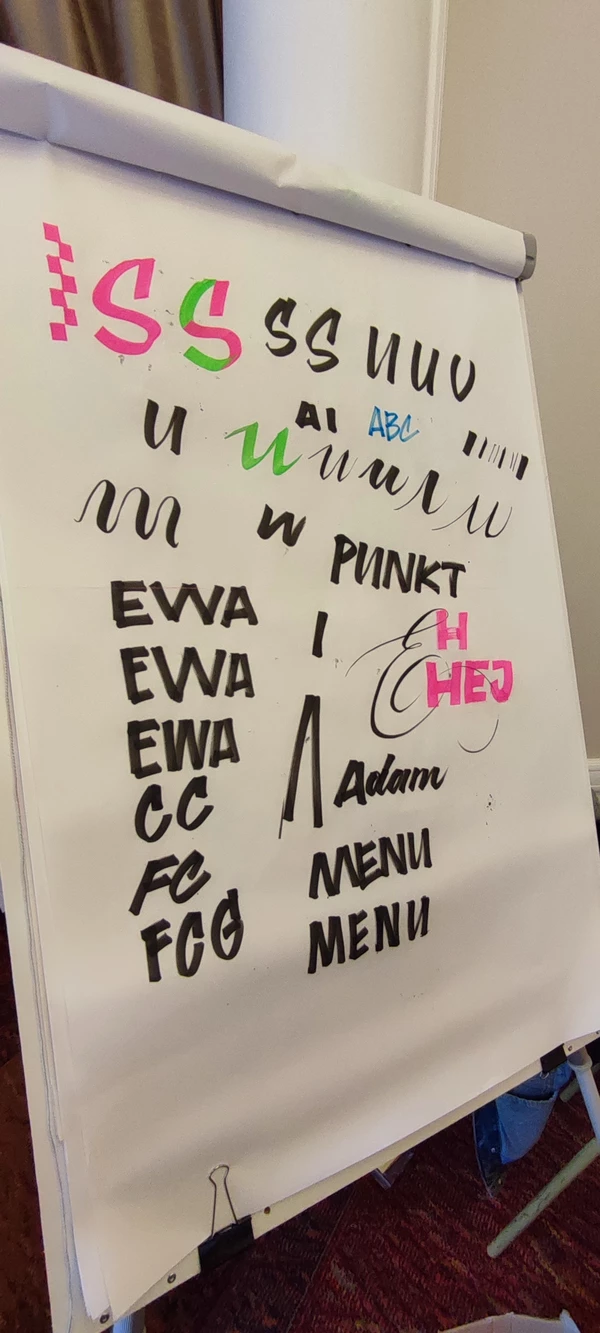 SS SS UUU
U U AI ABC
uuuu
m w PUNKT
EWA I EH
EWA HEJ
EWA Adam
CC
FC MENU
FCG MENU